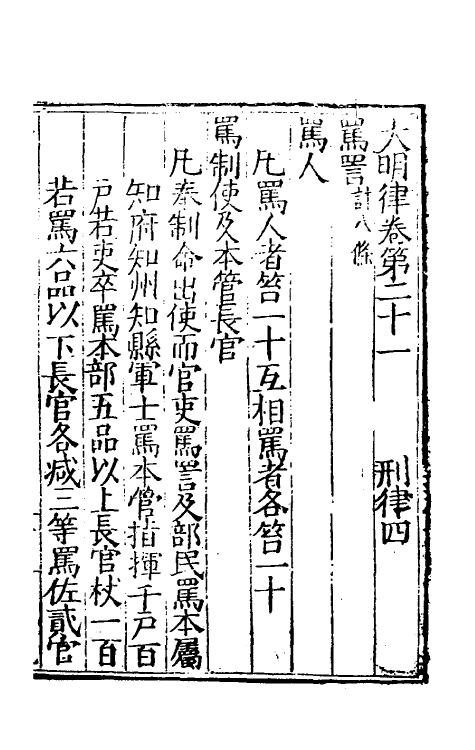 大明律卷第二十一　刑律四
罵詈計八條
罵人
凡罵人者笞一十互相罵者各笞一十
罵制使及本管長官
凡奉制命出使而官吏罵詈及部民罵本屬
知府知州知縣軍士罵本管指揮千戶百
戶若吏卒罵本部五品以上長官杖一百
若罵六品以下長官各减三等罵佐貳官